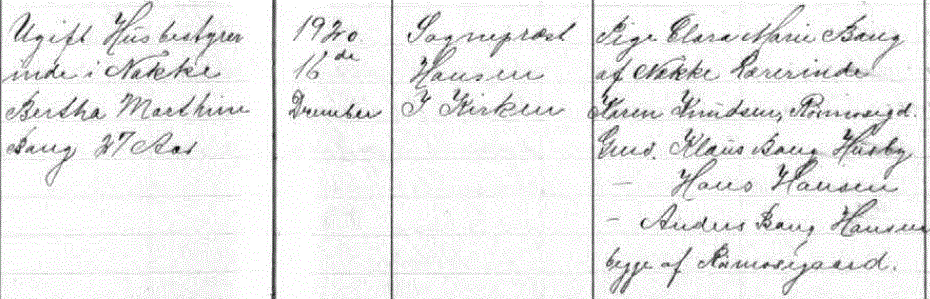 Ugift Husbestyrer
inde i Nakke
Bertha Marthine
Bang 27 Aar
1920
16 de
December
Sognepræst
Hansen
I Kirken
Pige Clara Marie Bang
af Nakke Lærerinde
Karen Knudsen, Rørmosegd.
Gmd. Klaus Bang Husby
— Hans Hansen
— Anders Bang Hansen
begge af Rørmosegaard.